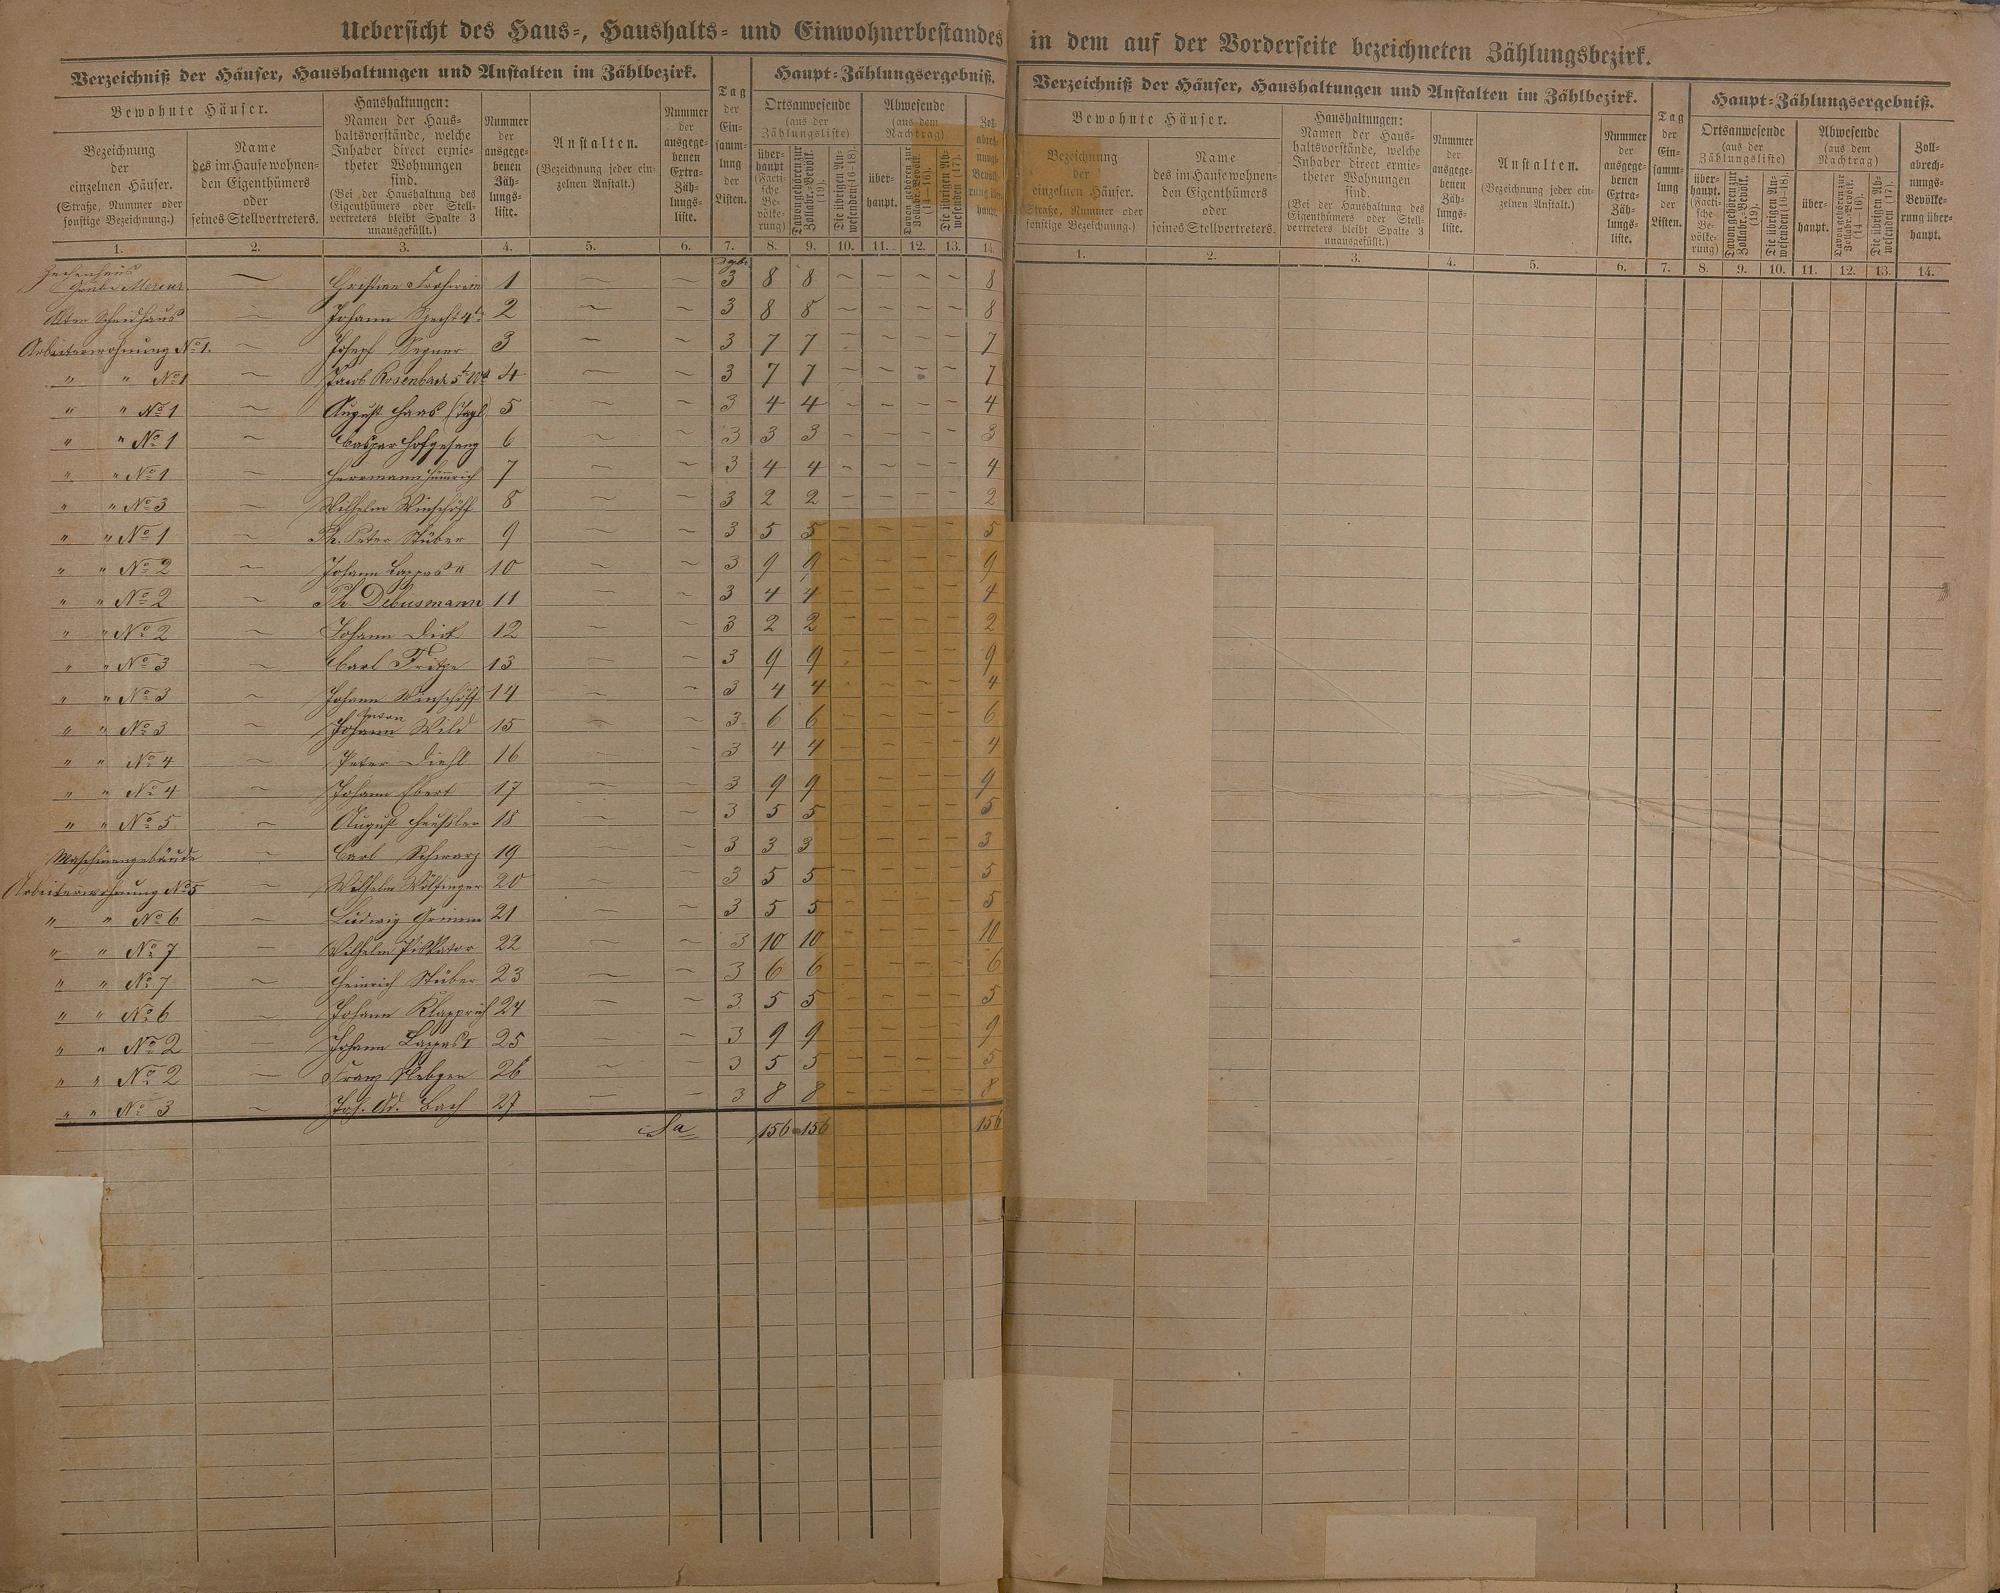 Uebersicht des Haus-, Haushalts- und Einwohnerbestandes in dem auf der Vorderseite bezeichneten Zählungsbezirk.
Verzeichniß der Häuser, Haushaltungen und Anstalten im Zählbezirk.
Bewohnte Häuser.
Bezeichnung
der
einzelnen Häuser.
(Straße, Nummer oder
sonstige Bezeichnung.)
Name
des im Hause wohnen-
den Eigenthümers
oder
seines Stellvertreters.
Haushaltungen:
Namen der Haus-
haltsvorstände, welche
Inhaber direct ermie-
theter Wohnungen
sind.
(Bei der Haushaltung des
Eigenthümers oder Stell-
vertreters bleibt Spalte 3
unausgefüllt.)
Nummer
der
ausgege-
benen
Zäh-
lungs-
liste.
Anstalten.
(Bezeichnung jeder ein-
zelnen Anstalt.)
Nummer
der
ausgege-
benen
Extra-
Zäh-
lungs-
liste.
Tag
der
Ein-
samm-
lung
der
Listen.
Haupt-Zählungsergebniß.
Ortsanwesende
(aus der
Zählungsliste)
über-
haupt
(Facti-
sche
Be-
völke-
rung)
Davon gehören zur
Zollabr.-Bevölk.
(19).
Die übrigen An-
wesenden (16–18).
Abwesende
(aus dem
Nachtrag)
über-
haupt.
Davon gehören zur
Zollabr.-Bevölk.
(14–16).
Die übrigen Ab-
wesenden (17).
Zoll-
abrech-
nungs-
Bevölke-
rung über-
haupt.
1. 2. 3. 4. 5. 6. 7. 8. 9. 10. 11. 12. 13. 14.
Zechenhaus
Grube Mercur — 1 — — 3 8 8 — — — — 8
Altes Scheidhaus — Johann Specht 2 — — 3 8 8 — — — — 8
Arbeiterwohnung No 1. — Joseph 3 — — 3 7 7 — — — — 7
" " No 1 — Jacob Rosenbach 4 — — 3 7 7 — — — — 7
" " No 1 — August Haas (Tagl) 5 — — 3 4 4 — — — — 4
" " No 1 — Caspar Hofgesang 6 — — 3 3 3 — — — — 3
" " No 1 — Herrmann 7 — — 3 4 4 — — — — 4
" " No 3 — Wilhelm Winschöff 8 — — 3 2 2 — — — — 2
" " No 1 — Ph. Peter Stüber 9 — — 3 5 5 — — — — 5
" " No 2 — Johann Lappas II 10 — — 3 9 9 — — — — 9
" " No 2 — Ph. Debusmann 11 — — 3 4 4 — — — — 4
" " No 2 — Johann Dick 12 — — 3 2 2 — — — — 2
" " No 3 — Carl Fritze 13 — — 3 9 9 — — — — 9
" " No 3 — Johann Winschöff 14 — — 3 4 4 — — — — 4
" " No 3 — Johann Wild 15 — — 3 6 6 — — — — 6
" " No 4 — Peter Diehl 16 — — 3 4 4 — — — — 4
" " No 4 — Johann Ebert 17 — — 3 9 9 — — — — 9
" " No 5 — August Heußler 18 — — 3 5 5 — — — — 5
Maschinengebäude — Carl Schwarz 19 — — 3 3 3 — — — — 3
Arbeiterwohnung No 5 — Wilhelm Wölfinger 20 — — 3 5 5 — — — — 5
" " No 6 — Ludwig Grimm 21 — — 3 5 5 — — — — 5
" " No 7 — Wilhelm Piskator 22 — — 3 10 10 — — — — 10
" " No 7 — Heinrich Stüber 23 — — 3 6 6 — — — — 6
" " No 6 — Johann Klapprich 24 — — 3 5 5 — — — — 5
" " No 2 — Johann Lappas I 25 — — 3 9 9 — — — — 9
" " No 2 — Franz 26 — — 3 5 5 — — — — 5
" " No 3 — Joh. Ad. Bach 27 — — 3 8 8 — — — — 8
Sa 156 156 156
Verzeichniß der Häuser, Haushaltungen und Anstalten im Zählbezirk.
Bewohnte Häuser.
Bezeichnung
der
einzelnen Häuser.
(Straße, Nummer oder
sonstige Bezeichnung.)
Name
des im Hause wohnen-
den Eigenthümers
oder
seines Stellvertreters.
Haushaltungen:
Namen der Haus-
haltsvorstände, welche
Inhaber direct ermie-
theter Wohnungen
sind.
(Bei der Haushaltung des
Eigenthümers oder Stell-
vertreters bleibt Spalte 3
unausgefüllt.)
Nummer
der
ausgege-
benen
Zäh-
lungs-
liste.
Anstalten.
(Bezeichnung jeder ein-
zelnen Anstalt.)
Nummer
der
ausgege-
benen
Extra-
Zäh-
lungs-
liste.
Tag
der
Ein-
samm-
lung
der
Listen.
Haupt-Zählungsergebniß.
Ortsanwesende
(aus der
Zählungsliste)
über-
haupt.
(Facti-
sche
Be-
völke-
rung)
Davon gehören zur
Zollabr.-Bevölk.
(19).
Die übrigen An-
wesenden (16–18).
Abwesende
(aus dem
Nachtrag)
über-
haupt.
Davon gehören zur
Zollabr.-Bevölk.
(14–16).
Die übrigen Ab-
wesenden (17).
Zoll-
abrech-
nungs-
Bevölke-
rung über-
haupt.
1. 2. 3. 4. 5. 6. 7. 8. 9. 10. 11. 12. 13. 14.